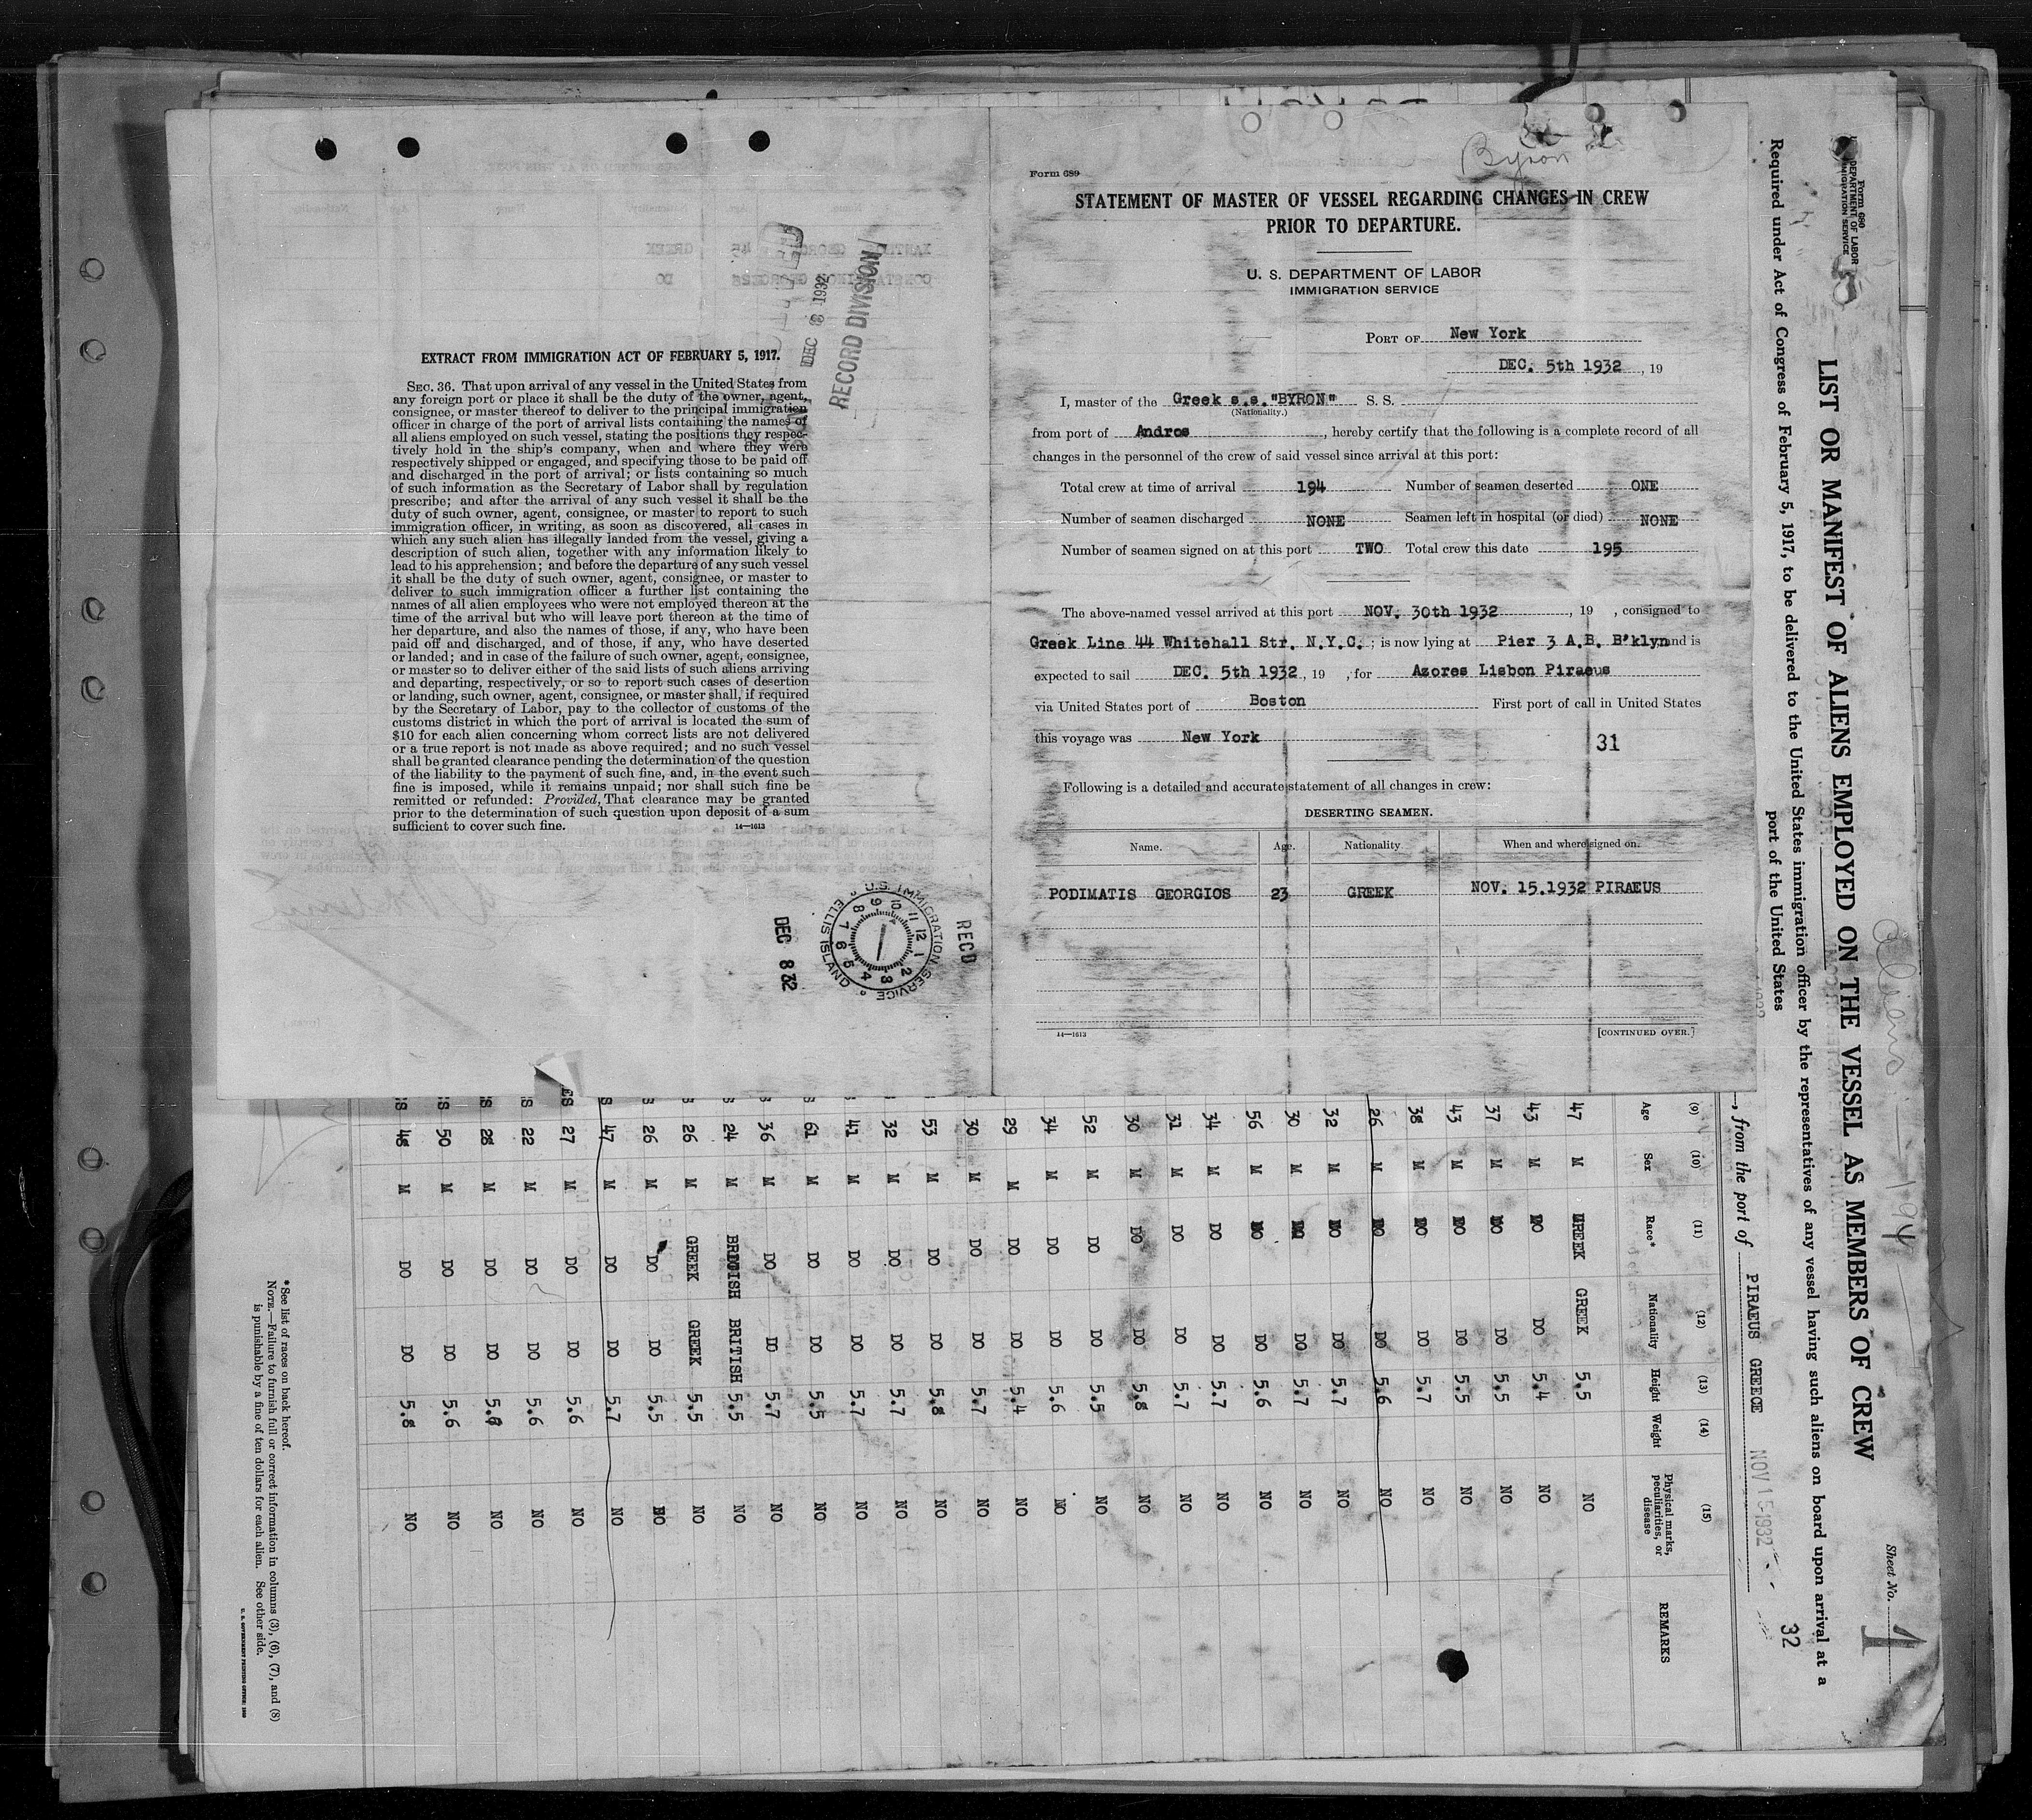 EXTRACT FROM IMMIGRATION ACT OF FEBRUARY 5, 1917.
SEC. 36. That upon arrival of any vessel in the United States from
any foreign port or place it shall be the duty of the owner, agent,
consignee, or master thereof to deliver to the principal immigration
officer in charge of the port of arrival lists containing the names of
all aliens employed on such vessel, stating the positions they respec-
tively hold in the ship's company, when and where they were
respectively shipped or engaged, and specifying those to be paid off
and discharged in the port of arrival; or lists containing so much
of such information as the Secretary of Labor shall by regulation
prescribe; and after the arrival of any such vessel it shall be the
duty of such owner, agent, consignee, or master to report to such
immigration officer, in writing, as soon as discovered, all cases in
which any such alien has illegally landed from the vessel, giving a
description of such alien, together with any information likely to
lead to his apprehension; and before the departure of any such vessel
it shall be the duty of such owner, agent, consignee, or master to
deliver to such immigration officer a further list containing the
names of all alien employees who were not employed thereon at the
time of the arrival but who will leave port thereon at the time of
her departure, and also the names of those, if any, who have been
paid off and discharged, and of those, if any, who have deserted
or landed; and in case of the failure of such owner, agent, consignee,
or master so to deliver either of the said lists of such aliens arriving
and departing, respectively, or so to report such cases of desertion
or landing, such owner, agent, consignee, or master shall, if required
by the Secretary of Labor, pay to the collector of customs of the
customs district in which the port of arrival is located the sum of
$10 for each alien concerning whom correct lists are not delivered
or a true report is not made as above required; and no such vessel
shall be granted clearance pending the determination of the question
of the liability to the payment of such fine, and, in the event such
fine is imposed, while it remains unpaid; nor shall such fine be
remitted or refunded: Provided, That clearance may be granted
prior to the determination of such question upon deposit of a sum
sufficient to cover such fine.
14—1613
DEC 8 1932
RECORD DIVISION
DEC 8 32
U.S. IMMIGRATION SERVICE ELLIS ISLAND
RECD
Byron
Form 689
STATEMENT OF MASTER OF VESSEL REGARDING CHANGES IN CREW
PRIOR TO DEPARTURE.
U. S. DEPARTMENT OF LABOR
IMMIGRATION SERVICE
PORT OF New York
DEC. 5th 1932, 19
I, master of the Greek s.s. "BYRON" S. S.
(Nationality.)
from port of Andros, hereby certify that the following is a complete record of all
changes in the personnel of the crew of said vessel since arrival at this port:
Total crew at time of arrival 194 Number of seamen deserted ONE
Number of seamen discharged NONE Seamen left in hospital (or died) NONE
Number of seamen signed on at this port TWO Total crew this date 195
The above-named vessel arrived at this port NOV. 30th 1932, 19 , consigned to
Greek Line 44 Whitehall Str. N.Y.C. ; is now lying at Pier 3 A.B. B'klyn and is
expected to sail DEC. 5th 1932, 19 , for Azores Lisbon Piraeus
via United States port of Boston First port of call in United States
this voyage was New York
31
Following is a detailed and accurate statement of all changes in crew:
DESERTING SEAMEN.
Name. Age. Nationality When and where signed on.
PODIMATIS GEORGIOS 23 GREEK NOV. 15.1932 PIRAEUS
14—1613 [CONTINUED OVER.]
Form 680
DEPARTMENT OF LABOR
IMMIGRATION SERVICE
Sheet No. 1
Aliens - 194
LIST OR MANIFEST OF ALIENS EMPLOYED ON THE VESSEL AS MEMBERS OF CREW
Required under Act of Congress of February 5, 1917, to be delivered to the United States immigration officer by the representatives of any vessel having such aliens on board upon arrival at a
port of the United States
32
, from the port of PIRAEUS GREECE NOV 15 1932
(9) (10) (11) (12) (13) (14) (15)
Age Sex Race* Nationality Height Weight Physical marks, peculiarities, or disease REMARKS
47 M GREEK GREEK 5.5 NO
43 M DO DO 5.4 NO
37 M DO DO 5.5 NO
43 M DO DO 5.5 NO
38 M DO DO 5.7 NO
26 M DO DO 5.6 NO
32 M DO DO 5.7 NO
30 M DO DO 5.7 NO
56 M DO DO 5.6 NO
34 M DO DO 5.7 NO
31 M DO DO 5.7 NO
30 M DO DO 5.8 NO
52 M DO DO 5.5 NO
34 M DO DO 5.6 NO
29 M DO DO 5.4 NO
30 M DO DO 5.7 NO
53 M DO DO 5.8 NO
32 M DO DO 5.7 NO
41 M DO DO 5.7 NO
61 M DO DO 5.5 NO
36 M DO DO 5.7 NO
24 M BRITISH BRITISH 5.5 NO
26 M GREEK GREEK 5.5 NO
26 M DO DO 5.5 NO
47 M DO DO 5.7 NO
27 M DO DO 5.6 NO
22 M DO DO 5.6 NO
28 M DO DO NO
50 M DO DO 5.6 NO
48 M DO DO 5.8 NO
*See list of races on back hereof.
NOTE.—Failure to furnish full or correct information in columns (3), (6), (7), and (8)
is punishable by a fine of ten dollars for each alien. See other side.